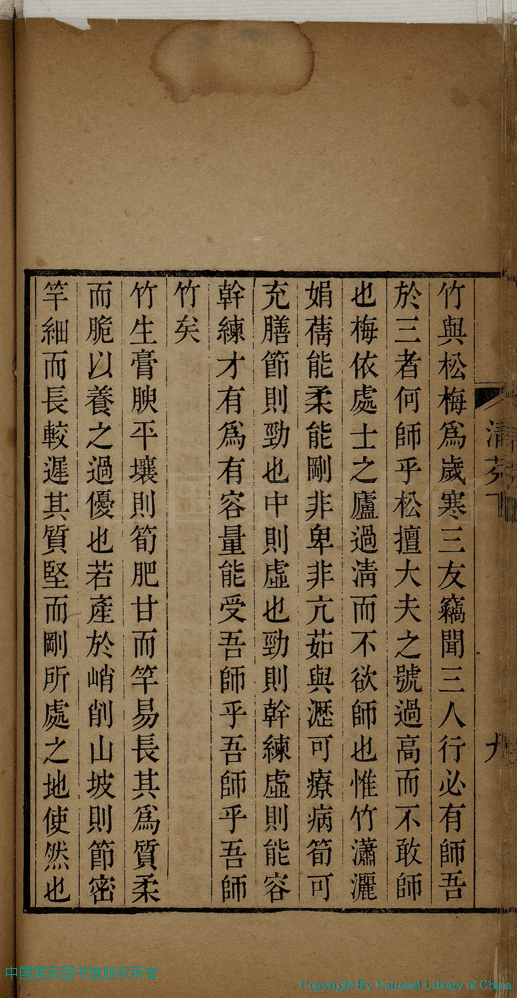 竹與松梅爲歲寒三友竊聞三人行必有師吾
於三者何師乎松擅大夫之號過高而不敢師
也梅依處士之廬過淸而不欲師也惟竹瀟灑
娟蒨能柔能剛非卑非亢茹與瀝可療病筍可
充膳節則勁也中則虛也勁則幹練虛則能容
幹練才有爲有容量能受吾師乎吾師乎吾師
竹矣
竹生膏腴平壤則筍肥甘而竿易長其爲質柔
而脆以養之過優也若產於峭削山坡則節密
竿細而長較遲其質堅而剛所處之地使然也
Copyright By National Library of China